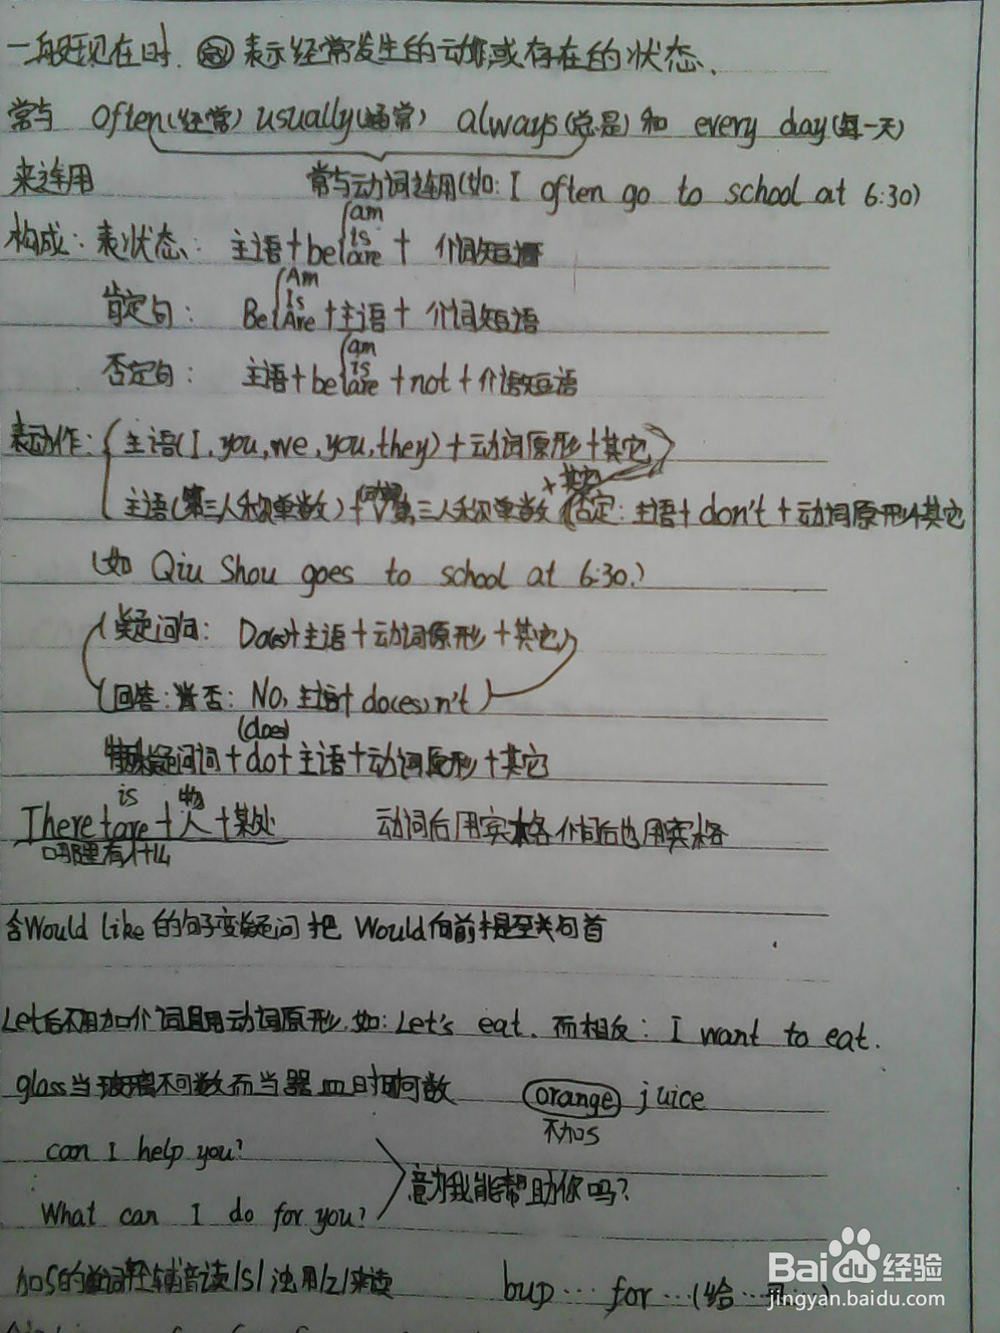 一般现在时. 表示经常发生的动作或存在的状态.
常与 often(经常) usually(通常) always(总是) 和 every day(每一天)
来连用 常与动词连用(如: I often go to school at 6:30)
构成: 表状态: 主语+be{am is are + 介词短语
肯定句: Be{Am Is Are+主语+ 介词短语
否定句: 主语+be{am is are +not+介词短语
表动作: 主语(I, you, we, you, they)+动词原形+其它
主语(第三人称单数)+动词第三人称单数+其它 (否定: 主语+don't+动词原形+其它
(如 Qiu Shou goes to school at 6:30.)
疑问句: Do(es)+主语+动词原形+其它
回答: 肯否: No, 主语+do(es)n't
特殊疑问词+do(does)+主语+动词原形+其它
There+is are+物 人+某处 动词后用宾格介词后也用宾格
哪里有什么
含Would like 的句子变疑问把 Would向前提至句首
Let后不用加介词且用动词原形.如: Let's eat. 而相反: I want to eat.
glass当玻璃不可数而当器皿时可数 orange juice
不加s
can I help you?
意为我能帮助你吗?
What can I do for you?
加s的单词轻辅音读/s/浊用/z/来读 bup … for …(给…
Baidu经验
jingyan.baidu.com